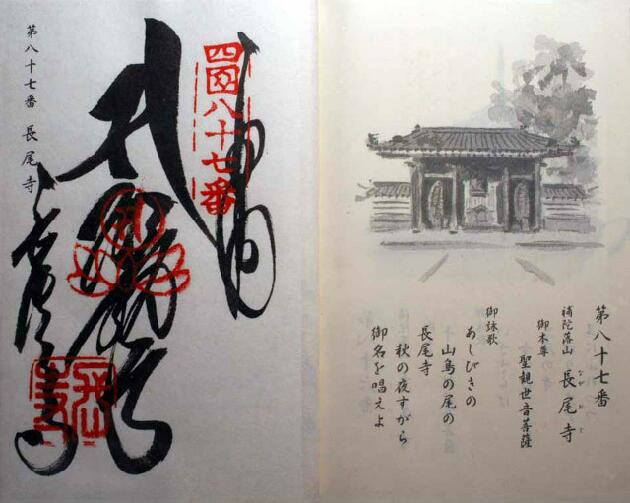 第八十七番
補陀落山 長尾寺
御本尊
聖観世音菩薩
御詠歌
あしびきの
山鳥の尾の
長尾寺
秋の夜すがら
御名を唱えよ
四国八十七番
第八十七番 長尾寺